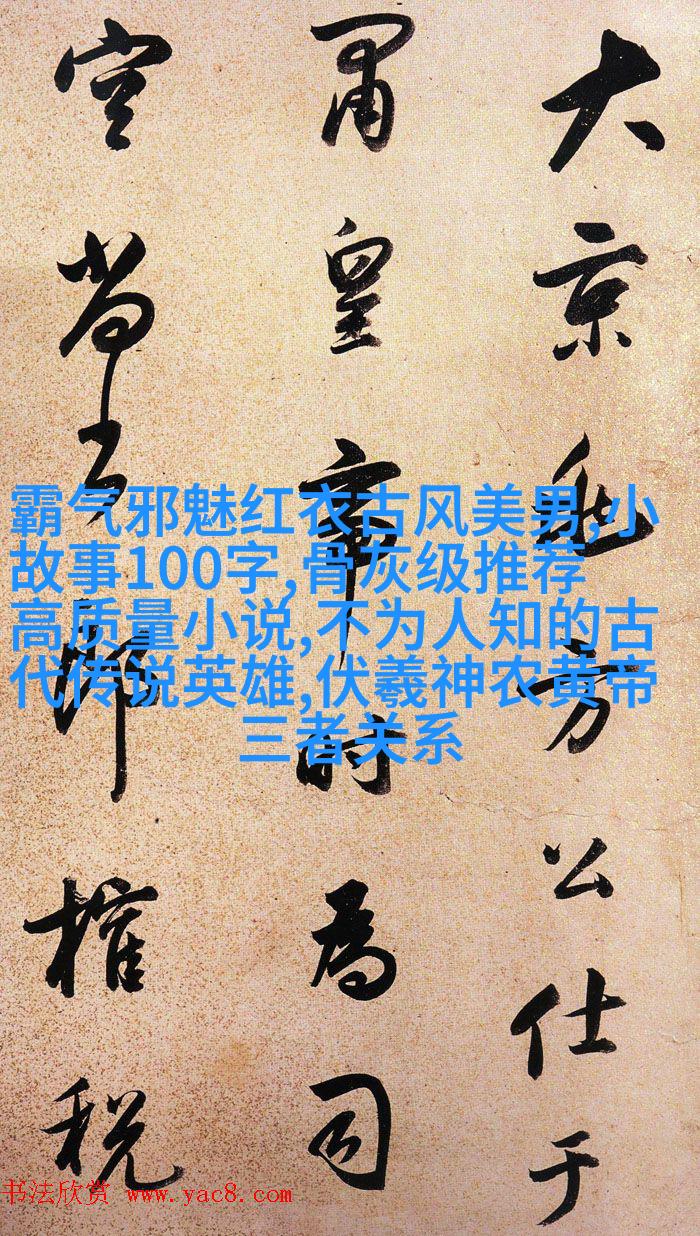 大京兆方公仕于
肅皇帝時為司
空尚書郎榷税
霸气邪魅红衣古风美男,小
故事100字,骨灰级推荐
高质量小说,不为人知的古
代传说英雄,伏羲神农黄帝
三者关系
书法欣赏 www.yac8.com